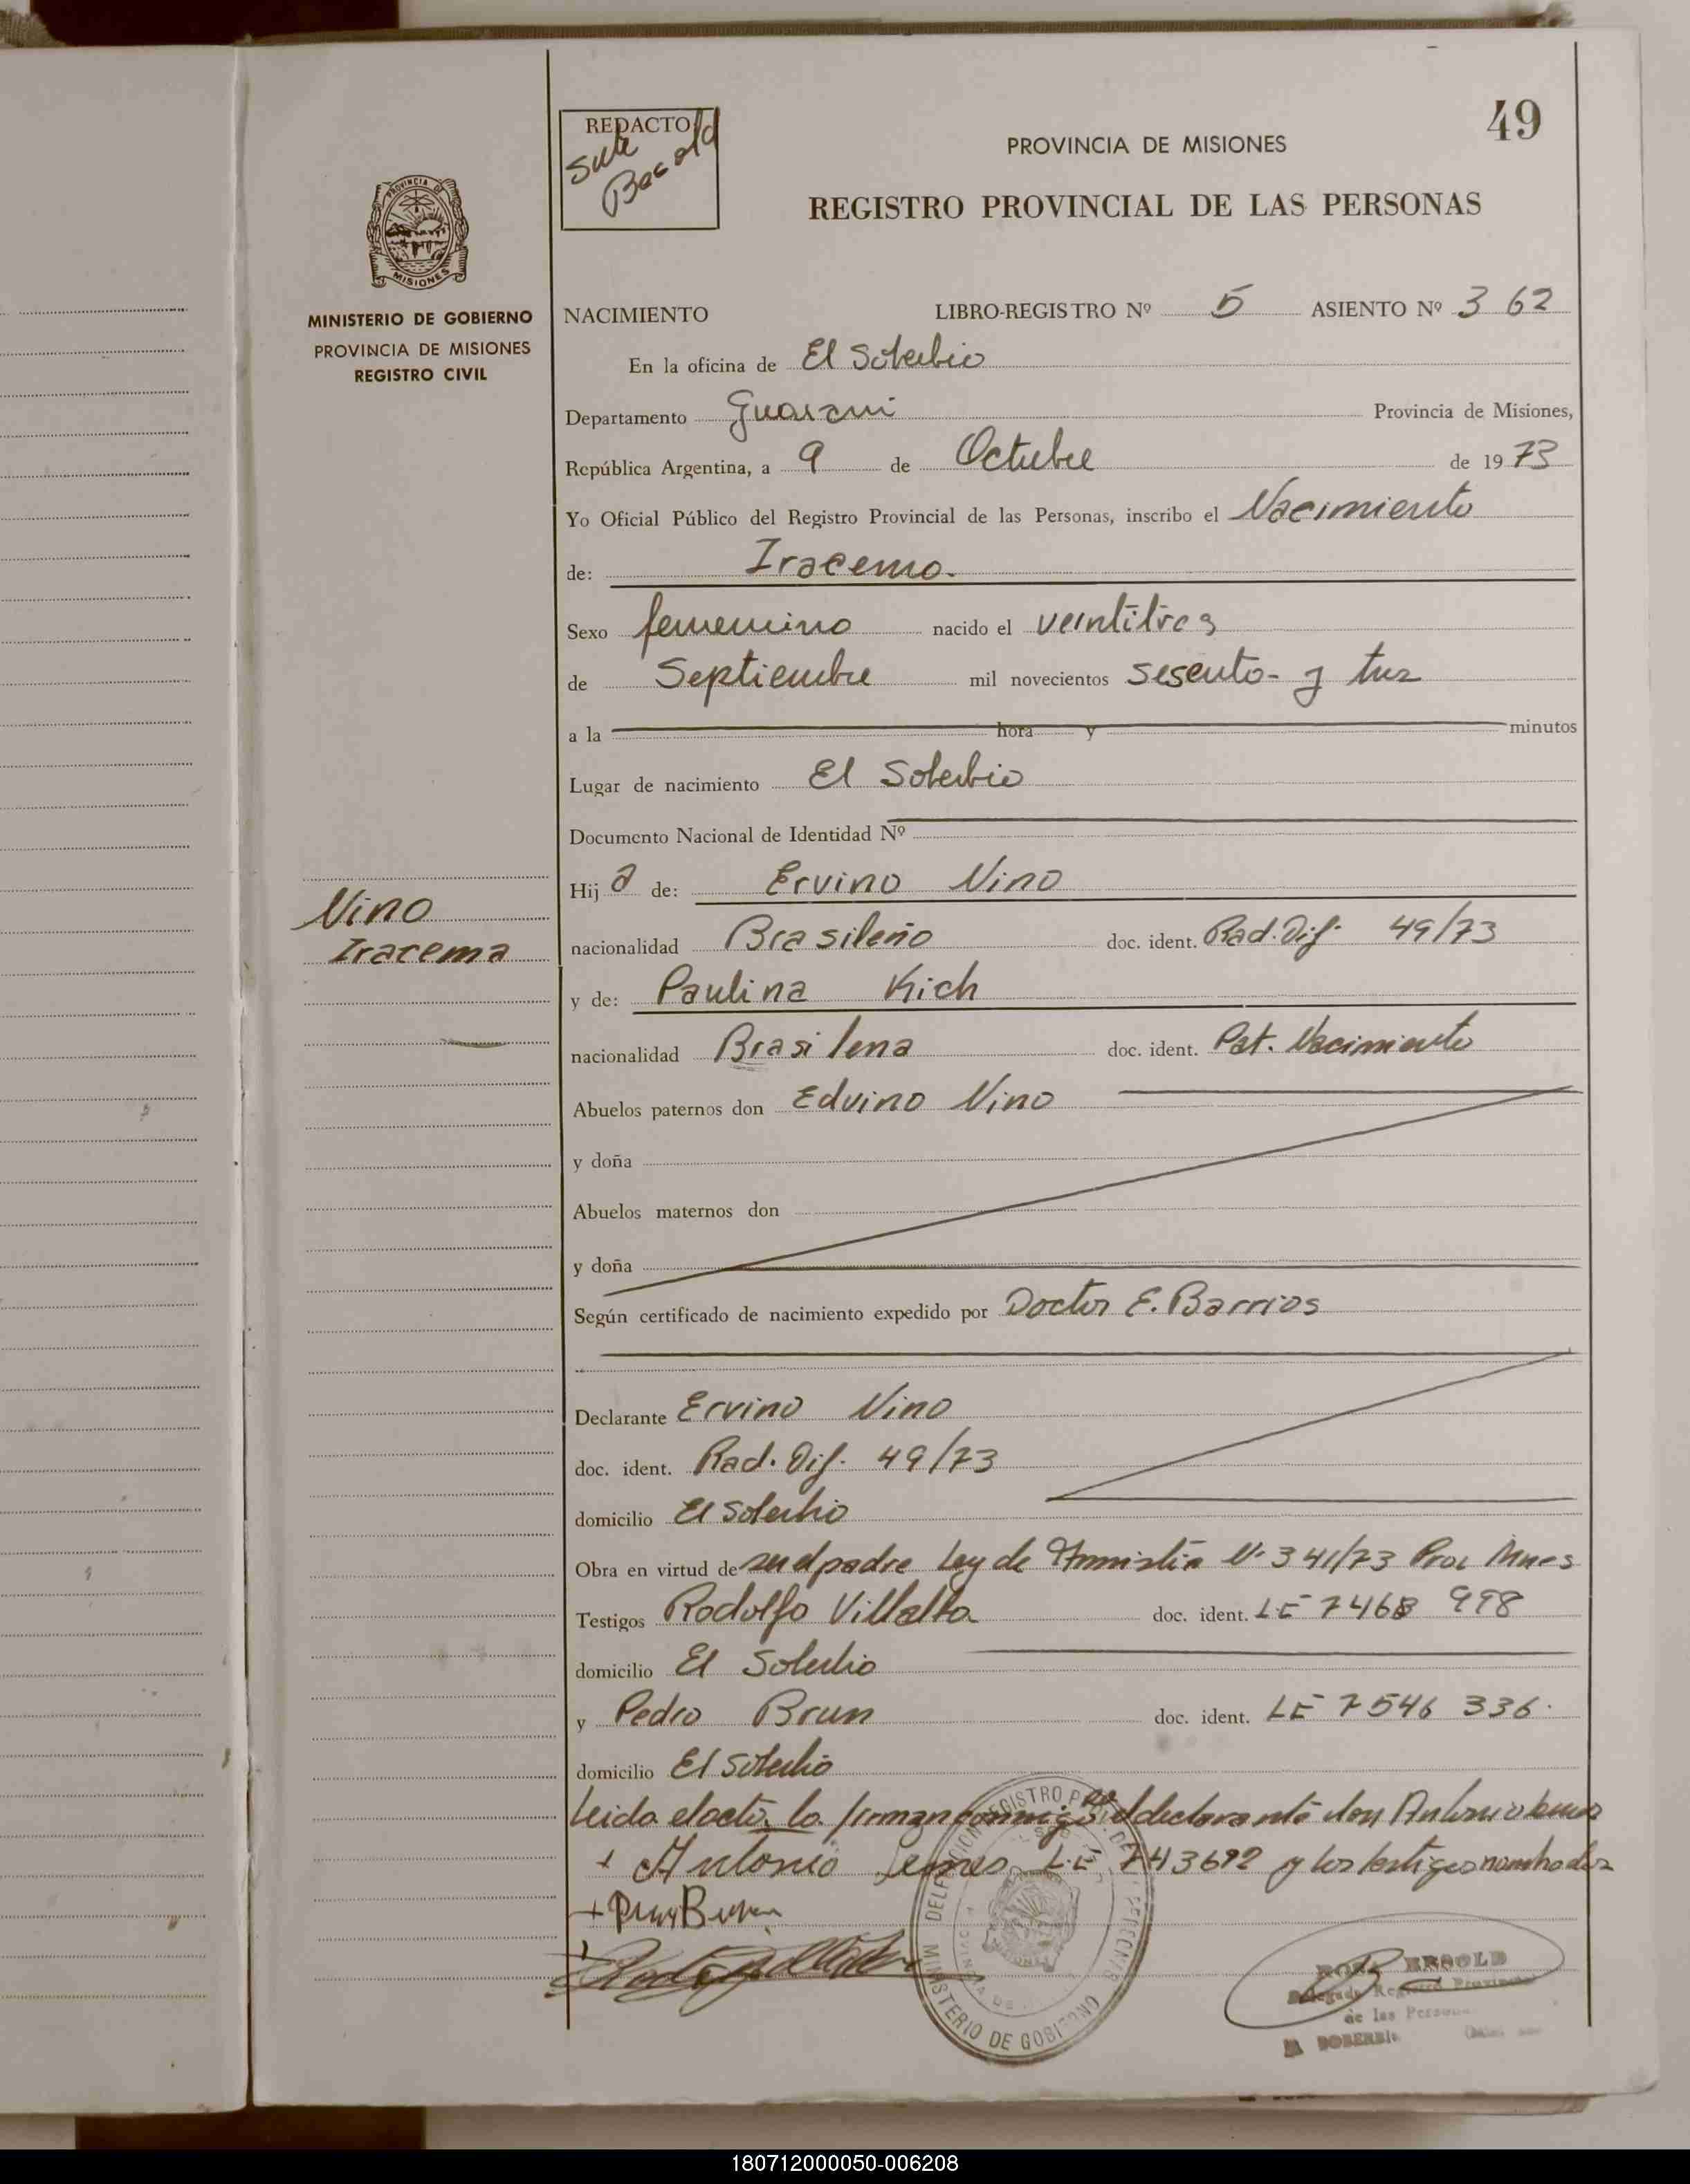 49
REDACTO
PROVINCIA DE MISIONES
REGISTRO PROVINCIAL DE LAS PERSONAS
PROVINCIA DE
MISIONES
MINISTERIO DE GOBIERNO
PROVINCIA DE MISIONES
REGISTRO CIVIL
NACIMIENTO LIBRO-REGISTRO Nº 5 ASIENTO Nº 362
En la oficina de El Soberbio
Departamento Guarani Provincia de Misiones,
República Argentina, a 9 de Octubre de 1973
Yo Oficial Público del Registro Provincial de las Personas, inscribo el Nacimiento
de: Iracema.
Sexo femenino nacido el veintitres
de Septiembre mil novecientos sesenta y tres
a la hora y minutos
Lugar de nacimiento El Soberbio
Documento Nacional de Identidad Nº
Hija de: Ervino Nino
Nino
Iracema
nacionalidad Brasileño doc. ident. Rad. Dif. 49/73
y de: Paulina Kich
nacionalidad Brasilena doc. ident. Pat. Nacimiento
Abuelos paternos don Edvino Nino
y doña
Abuelos maternos don
y doña
Según certificado de nacimiento expedido por Doctor E. Barrios
Declarante Ervino Nino
doc. ident. Rad. Dif. 49/73
domicilio El Soberbio
Obra en virtud de ser el padre Ley de Amnistia Nº 341/73
Testigos Rodolfo Villalba doc. ident. LE 7468 998
domicilio El Soberbio
y Pedro Brun doc. ident. LE 7546 336.
domicilio El Soberbio
Leida el acta, la firman conmigo el declarante don Antonio
+ Antonio L.E. 743692 y los testigos nombrados
DELEGACION REGISTRO PROV. DE LAS PERSONAS
MINISTERIO DE GOBIERNO
Delegada Registro Provincial
de las Personas
EL SOBERBIO
180712000050-006208